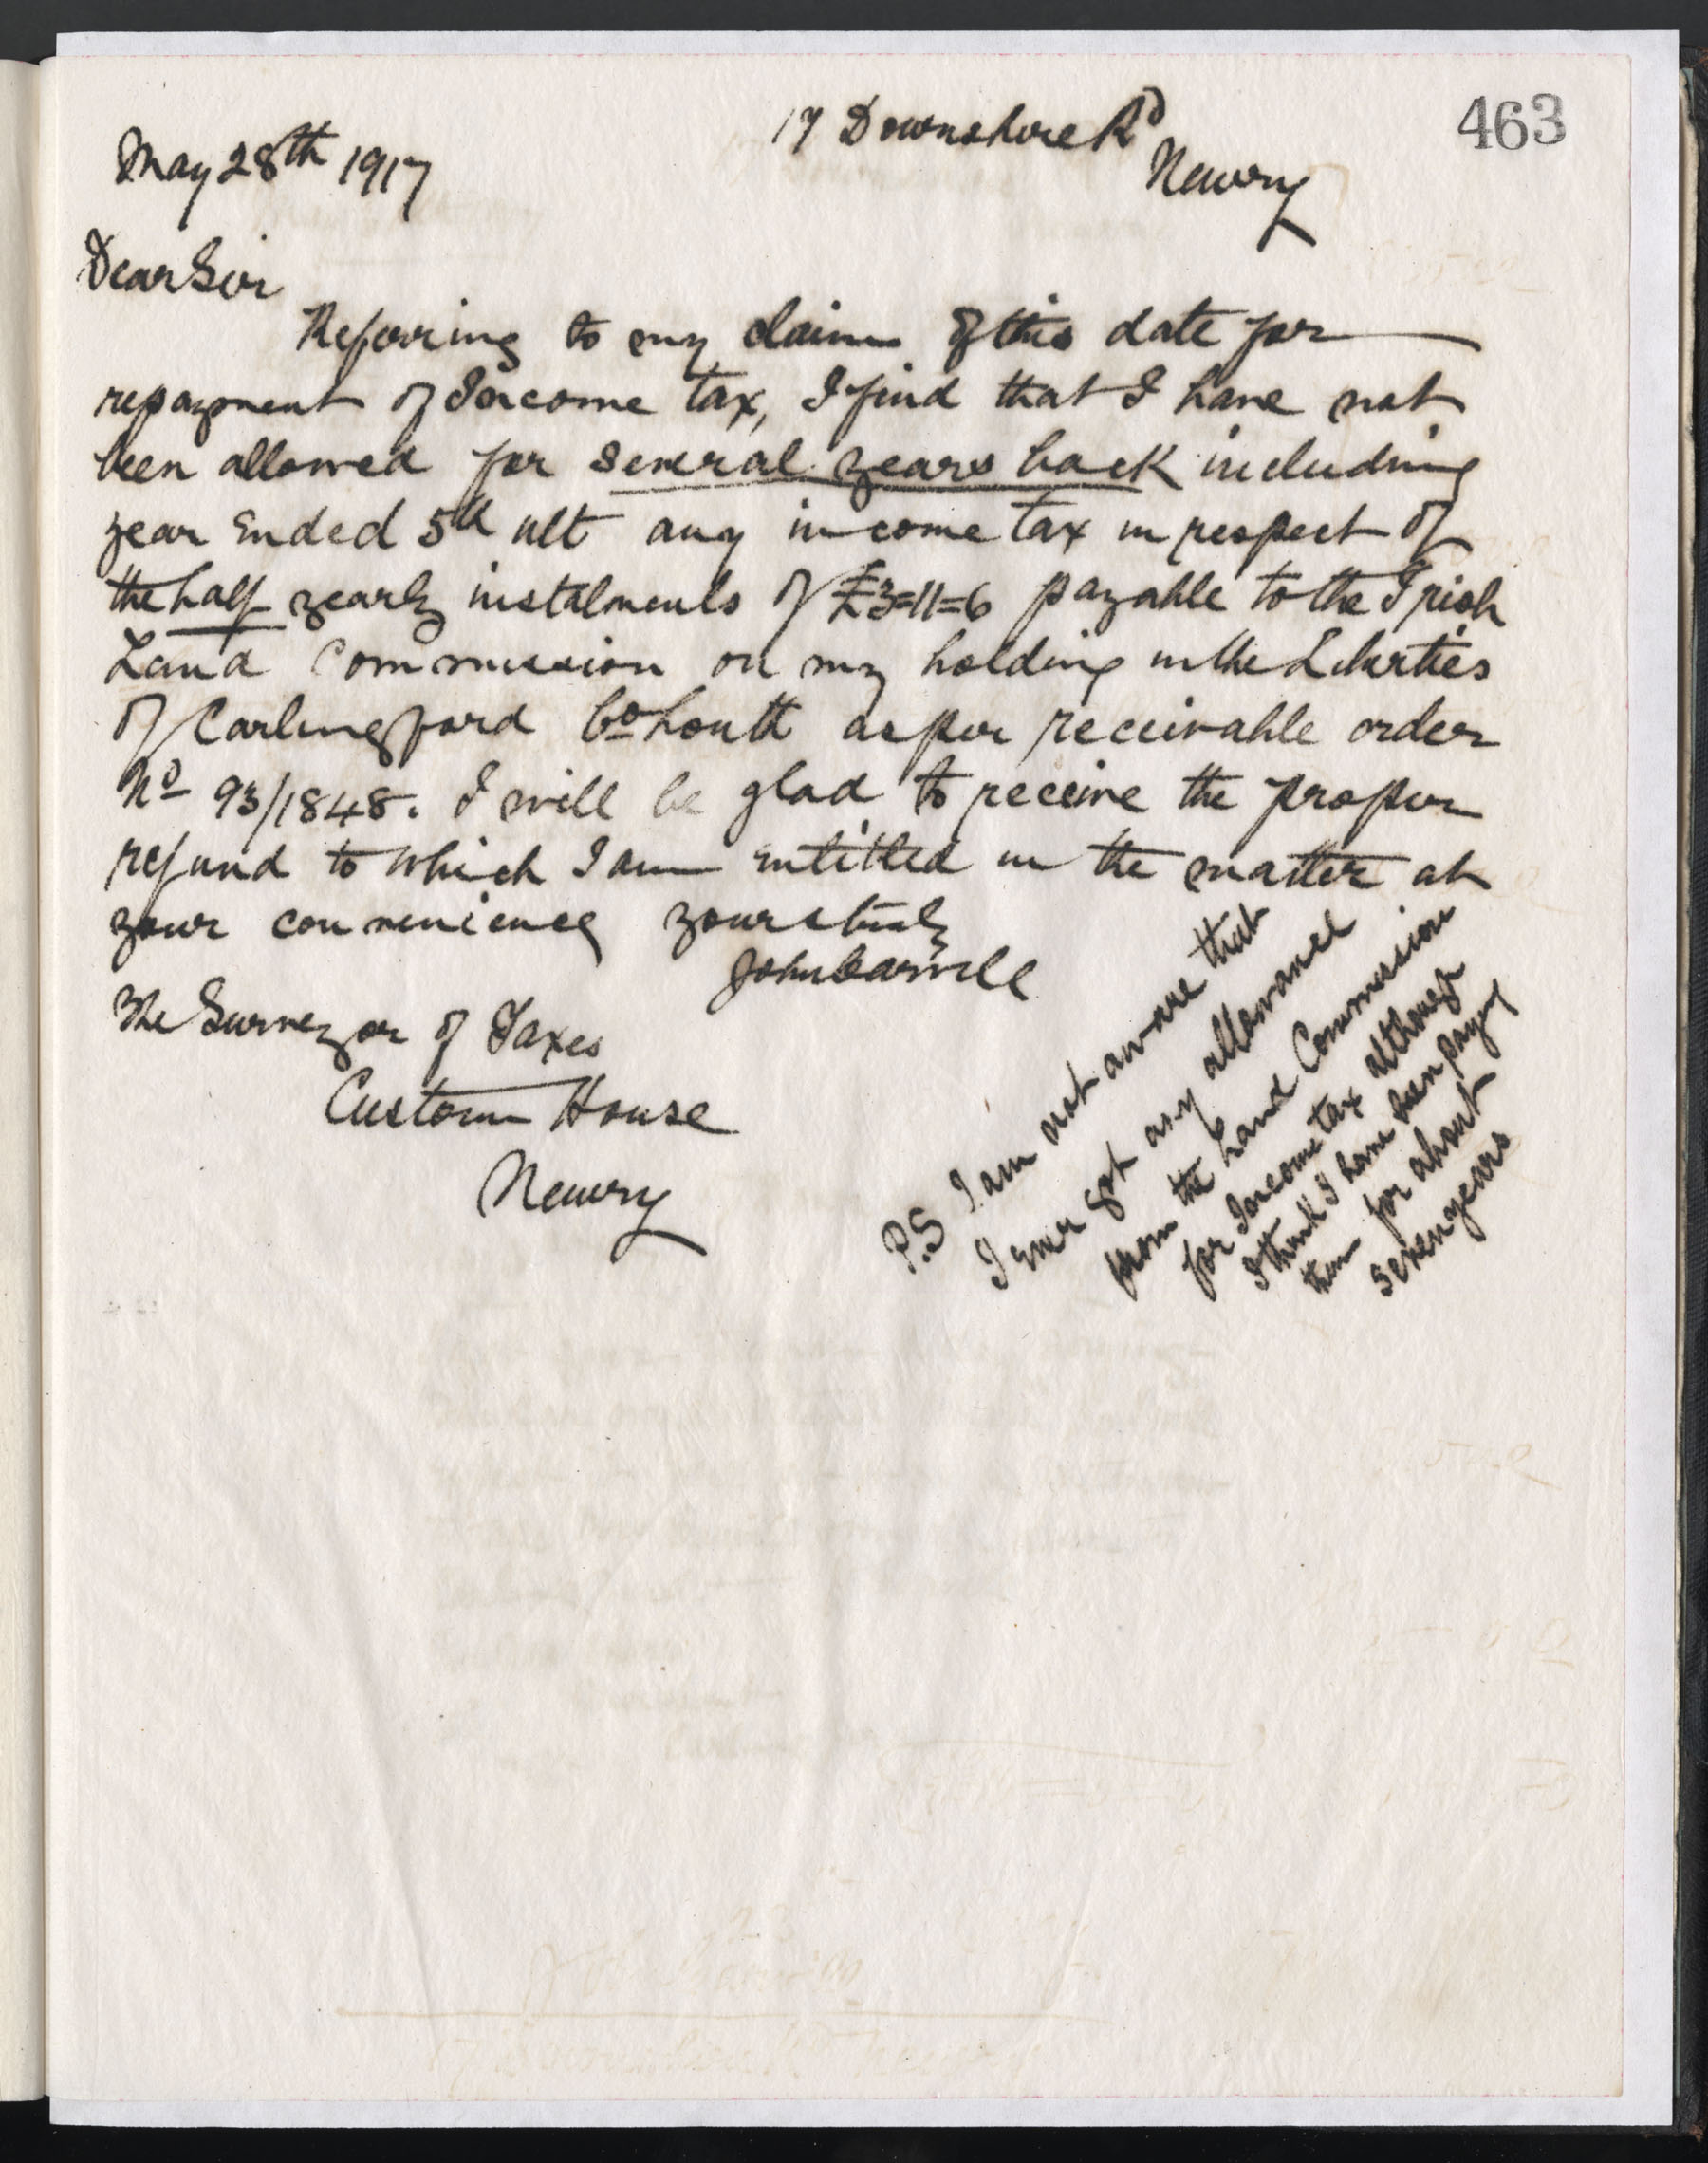 463
17 Downshire Rd
Newry
May 28th 1917
Dear Sir
Referring to my claim of this date for
repayment of Income tax, I find that I have not
been allowed for several years back including
year ended 5th ult any income tax in respect of
the half yearly instalments of £3=11=6 payable to the Irish
Land Commission on my holding in the Liberties
of Carlingford Co Louth as per receivable order
No 93/1848. I will be glad to receive the proper
refund to which I am entitled in the matter at
your convenience yours truly
John Carvill
The Surveyor of Taxes
Custom House
Newry
P.S I am not aware that
I ever got any allowance
from the Land Commission
for Income tax although
I think I have been paying
them for about
seven years